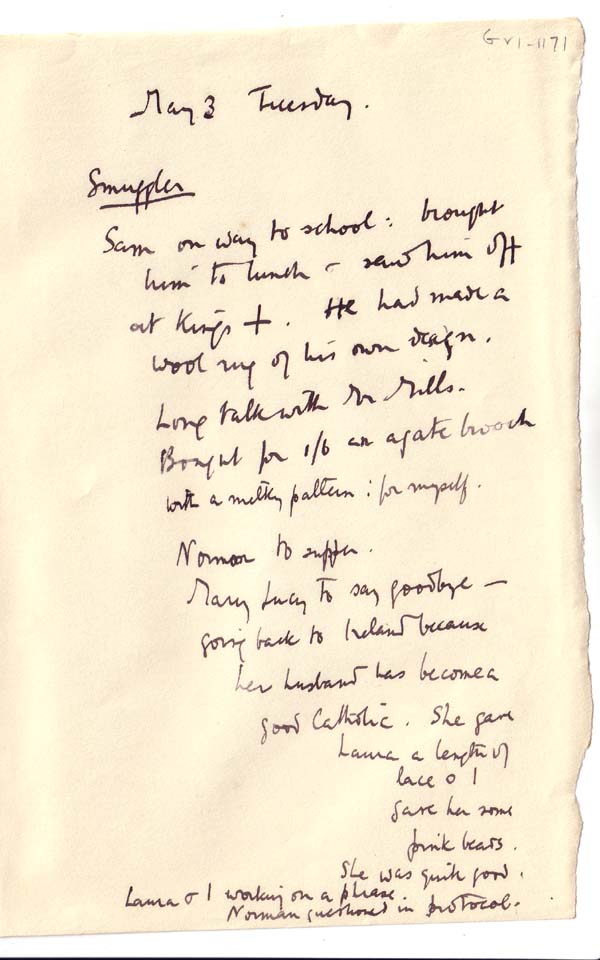 GV1-1171
May 3 Tuesday.
Smuggler
Sam on way to school: brought
him to lunch & saw him off
at Kings +. He had made a
wool rug of his own design.
Long talk with Mr Mills.
Bought for 1/6 an agate brooch
with a milky pattern: for myself.
Norman to supper.
Mary Lucy to say goodbye —
going back to Ireland because
her husband has become a
good Catholic. She gave
Laura a length of
lace & I
gave her some
pink beads.
She was quite good.
Laura & I working on a phrase.
Norman questioned in protocol.